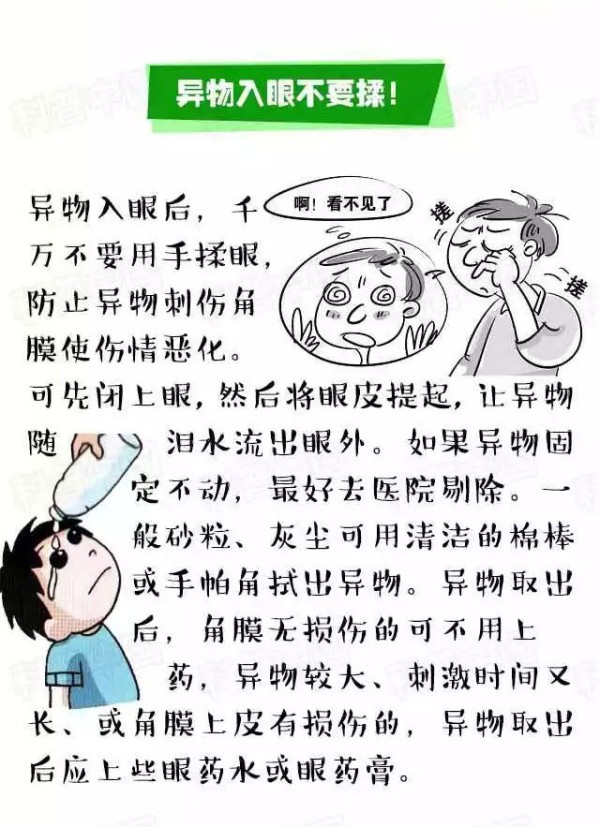 异物入眼不要揉！
异物入眼后，千
万不要用手揉眼，
防止异物刺伤角
膜使伤情恶化。
啊！看不见了
搓
搓
可先闭上眼，然后将眼皮提起，让异物
随泪水流出眼外。如果异物固
定不动，最好去医院剔除。一
般砂粒、灰尘可用清洁的棉棒
或手帕角拭出异物。异物取出
后，角膜无损伤的可不用上
药，异物较大、刺激时间又
长、或角膜上皮有损伤的，异物取出
后应上些眼药水或眼药膏。